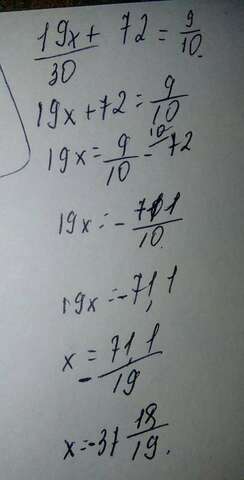 19x+/30 72 = 9/10.
19x+72 = 9/10
19x = 9/10 - 72
19x = - 711/10.
19x = -71,1
x = - 71,1/19
x = -37 18/19.